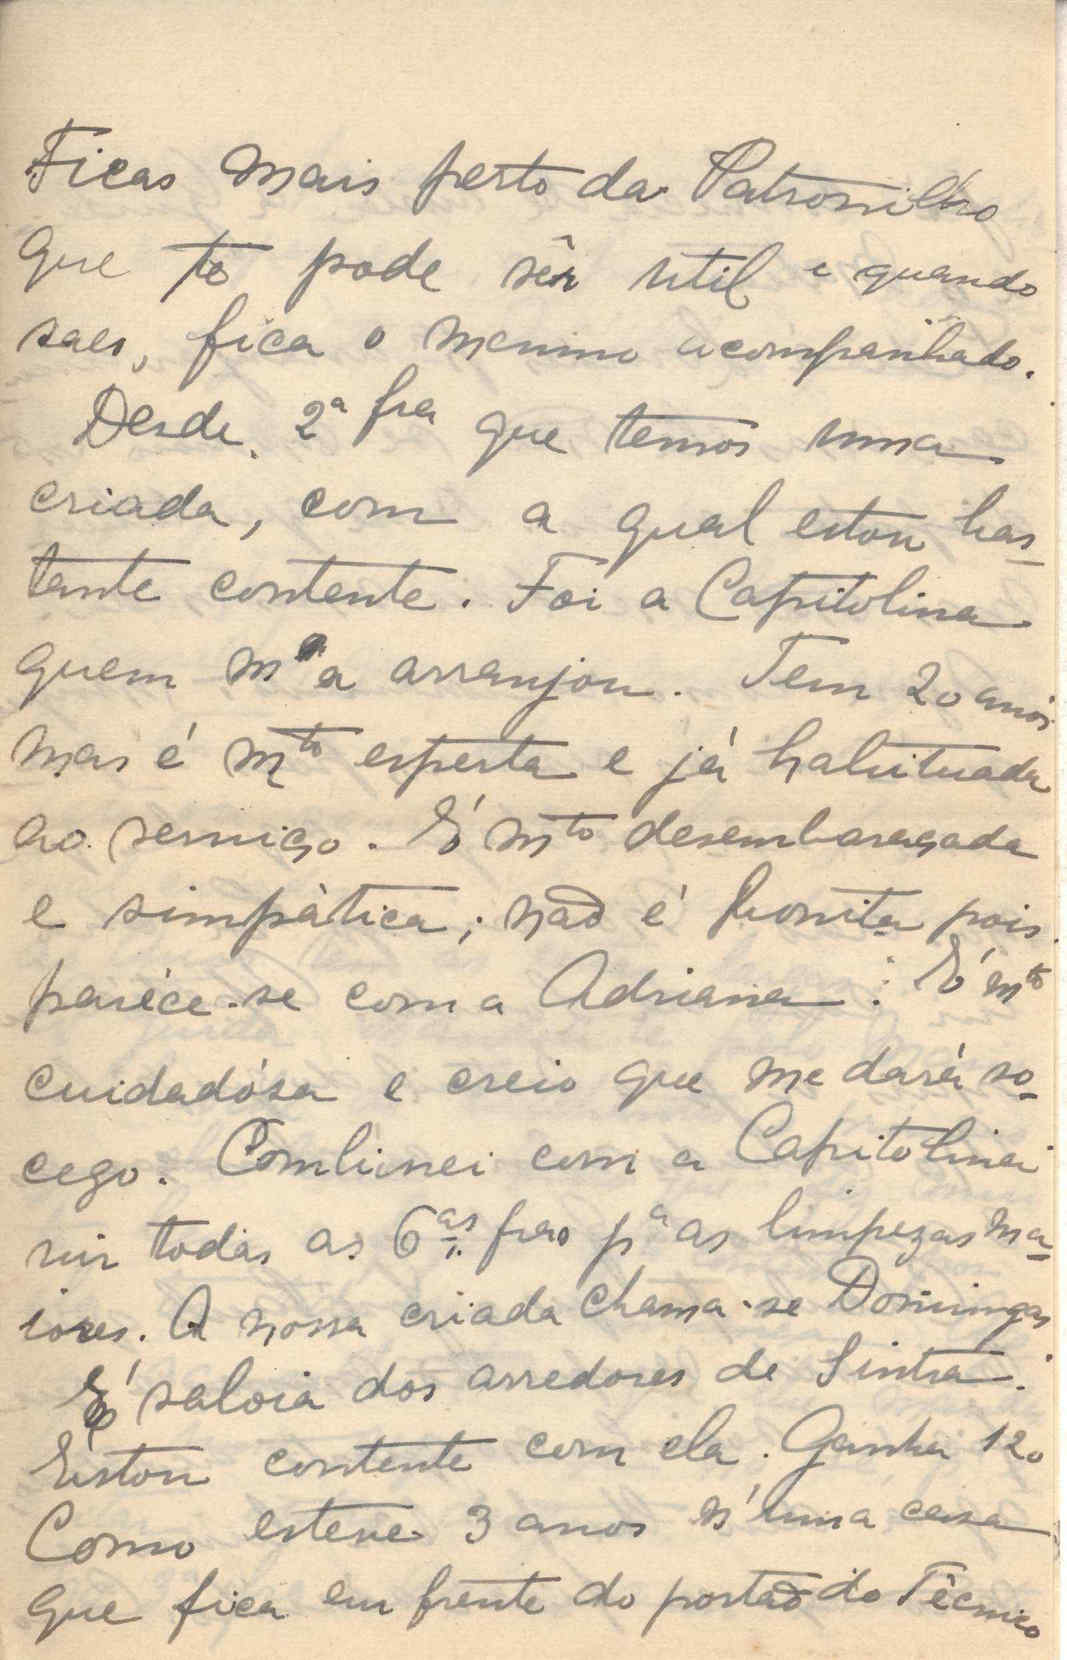 Ficas mais perto da Patronilho
que te pode sêr util e quando
saes, fica o menino acompanhado.
Desde 2ª fra que temos uma
criada, com a qual estou bas-
tante contente. Foi a Capitolina
quem m'a arranjou. Tem 20 anos
mas é mto esperta e já habituada
ao serviço. É mto desembaraçada
e simpàtica; não é bonita pois
paréce-se com a Adriana. É mto
cuidadósa e creio que me dará so-
cego. Combinei com a Capitolina
vir todas as 6as fras pª as limpezas ma-
iores. A nossa criada chama-se Domingas
É saloia dos arredores de Sintra.
Estou contente com ela. Ganha 120
Como esteve 3 anos n'uma casa
que fica em frente do portão do Técnico